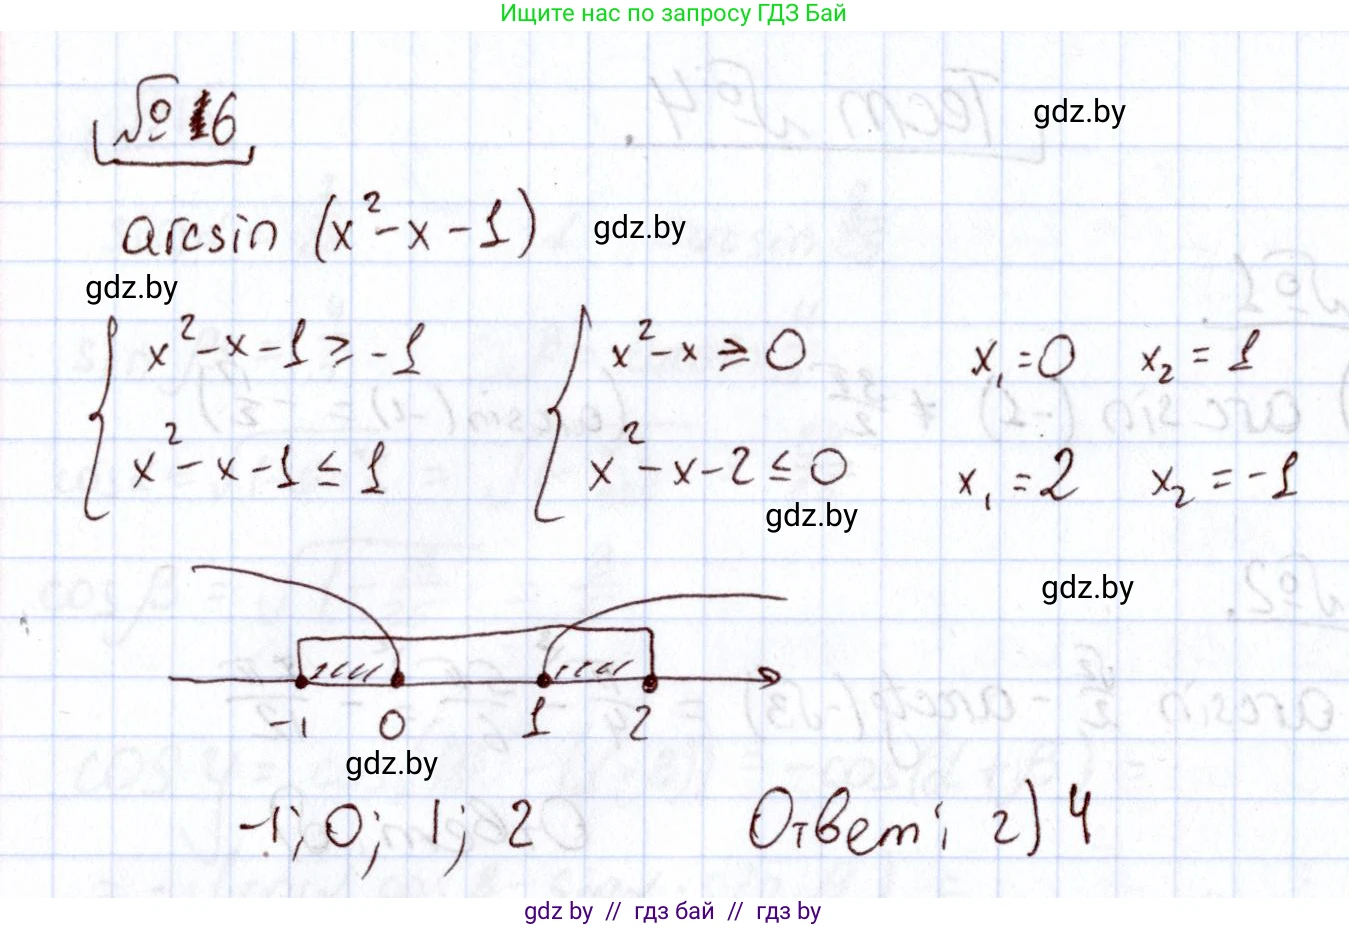 Ищите нас по запросу ГДЗ Бай
№ 6
gdz.by
arcsin (x²-x-1)
gdz.by
gdz.by
x²-x-1 ≥ -1 x²-x ≥ 0 x₁=0 x₂=1
x²-x-1 ≤ 1 x²-x-2 ≤ 0 x₁=2 x₂=-1
gdz.by
gdz.by
-1 0 1 2
gdz.by
-1; 0; 1; 2 Ответ: г) 4
gdz by // гдз бай // гдз by